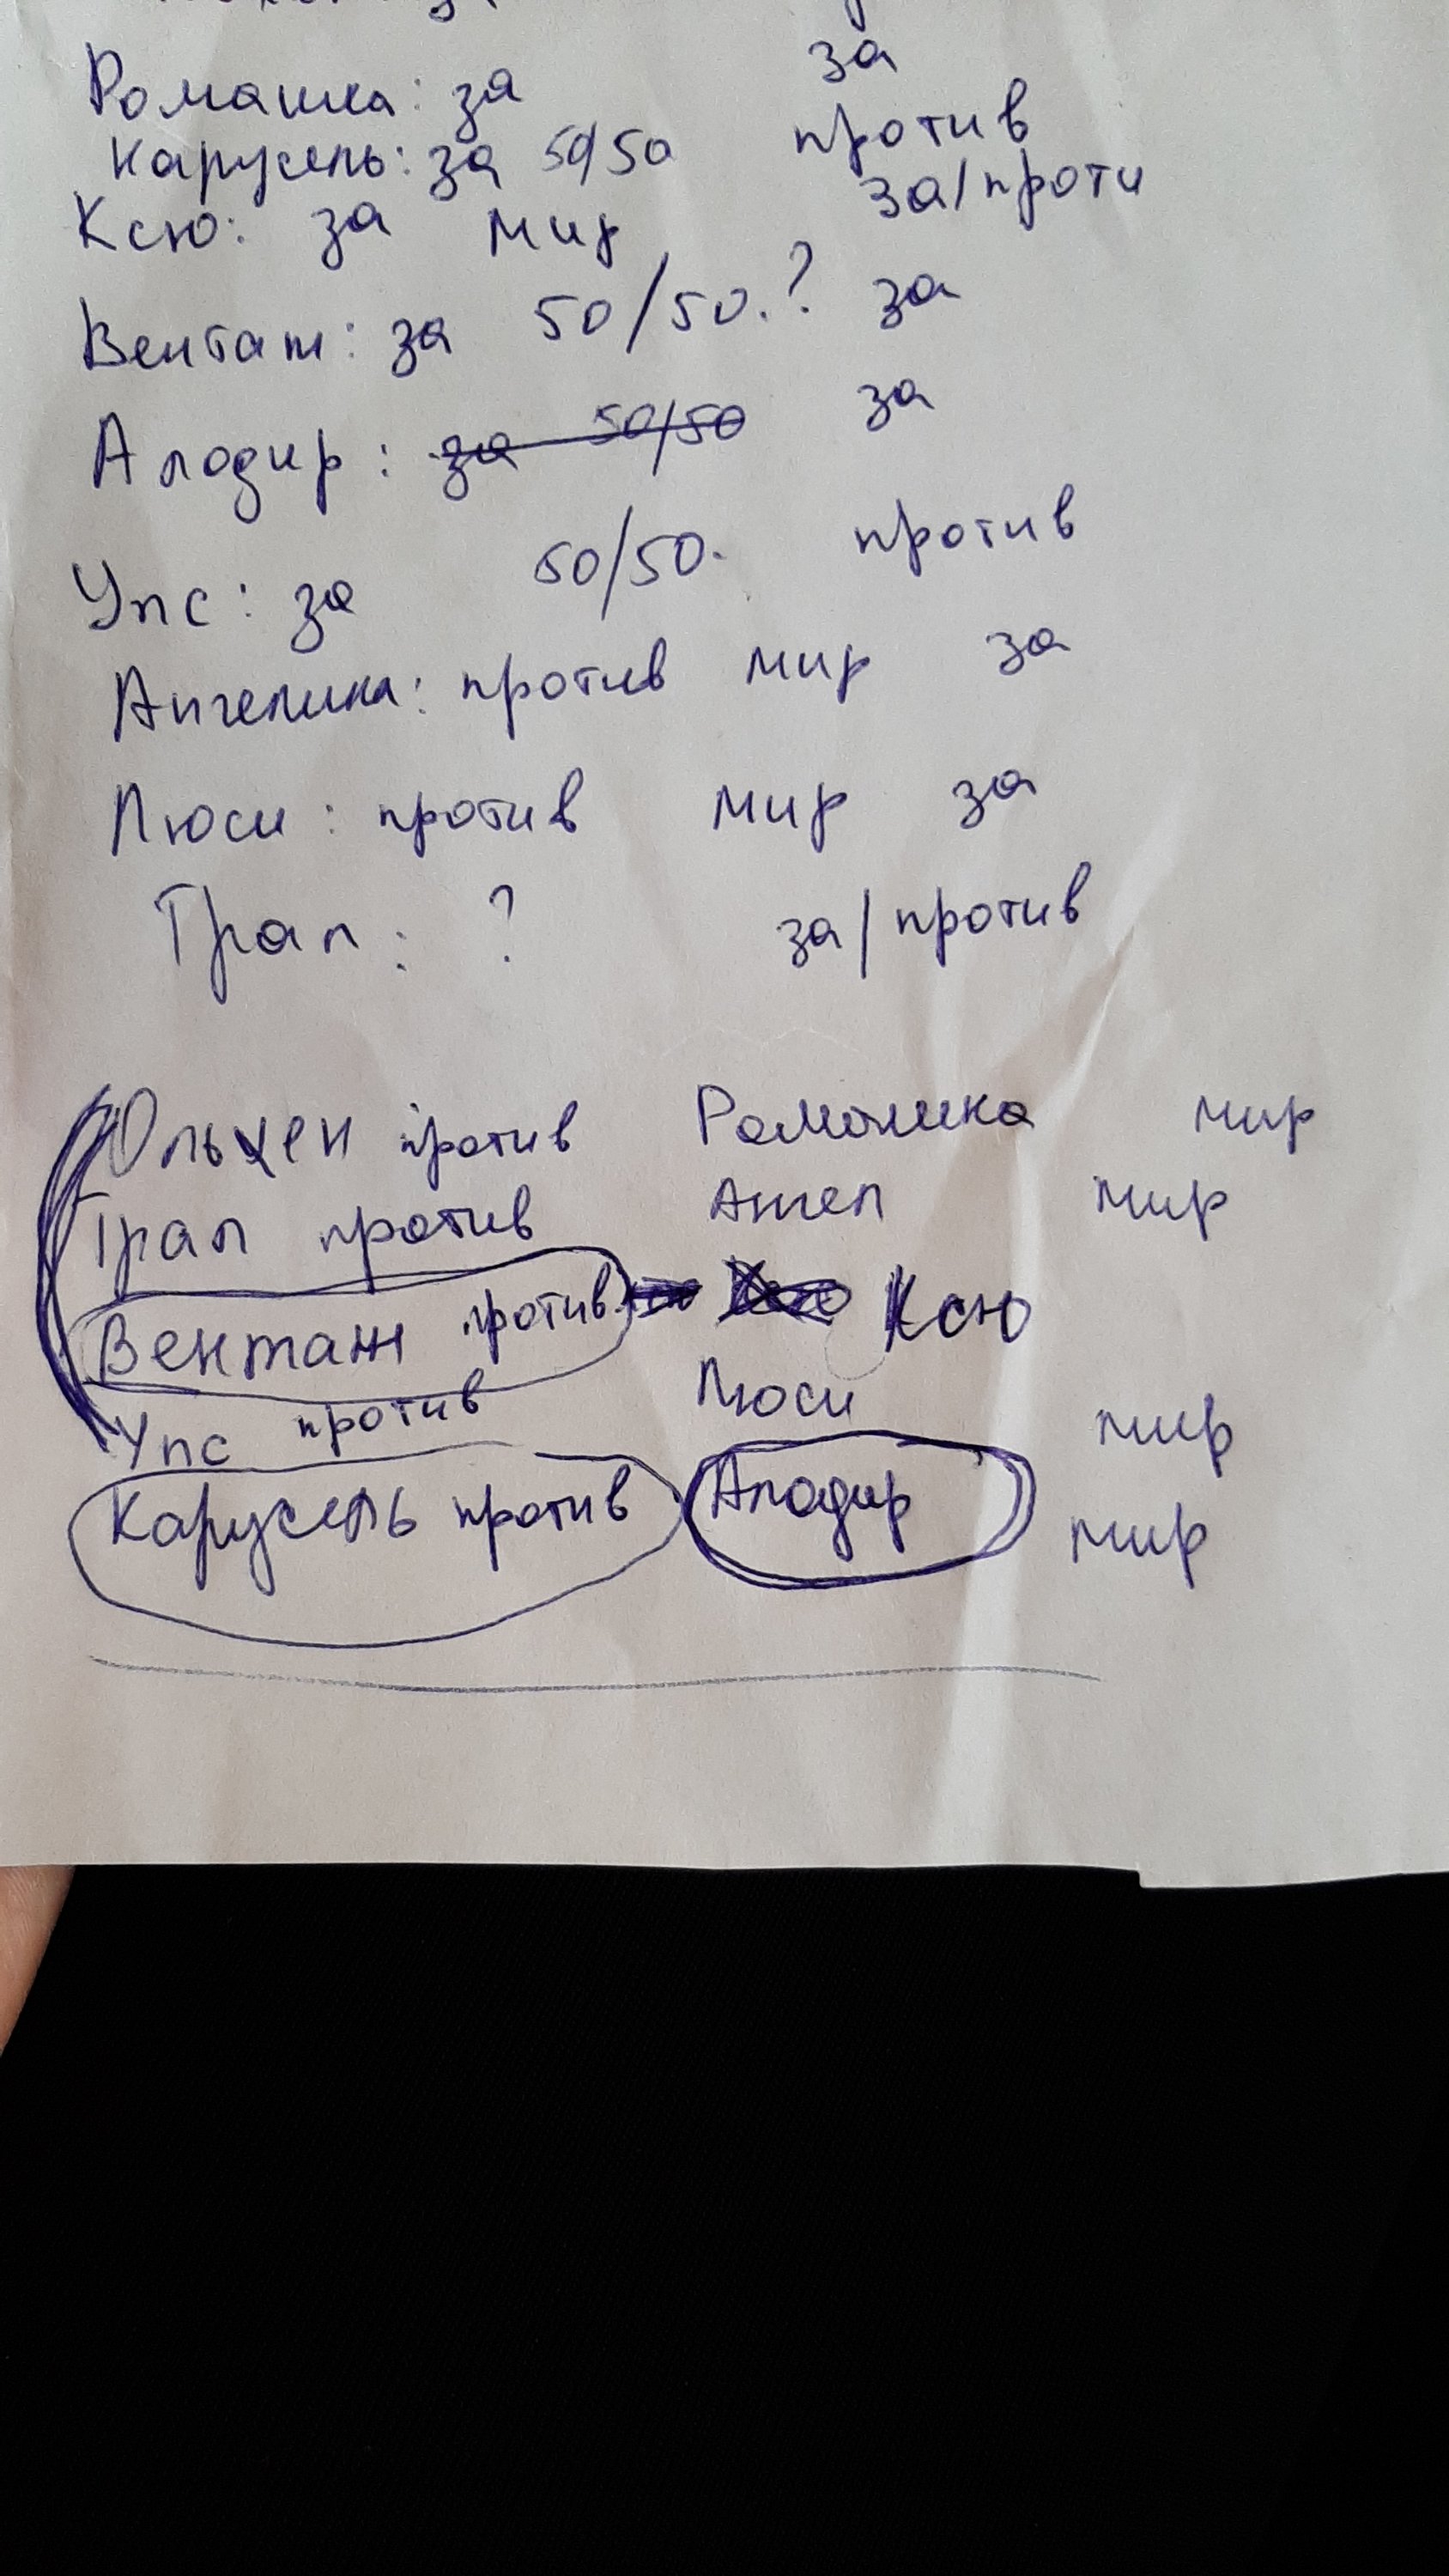 за
Ромашка: за
Карусель: за 50/50 против
Ксю: за мир за/проти
Вентаж: за 50/50.? за
Алодир: за 50/50 за
Упс: за 50/50. против
Ангелина: против мир за
Люси: против мир за
Трал: ? за/против
Ольхен против Ромашка мир
Трал против Ангел мир
Вентаж против Ксю
Упс против Люси мир
Карусель против Алодир мир